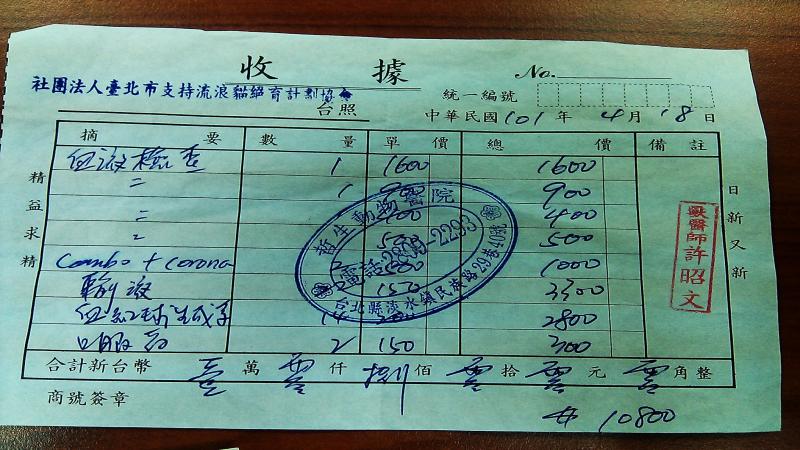 收 據
No.
社團法人臺北市支持流浪貓絕育計劃協會
台照
統一編號
中華民國 101 年 4 月 18 日
摘 要 數 量 單 價 總 價 備 註
血液檢查 1 1600 1600
〃 1 900 900
〃 400 400
〃 500 500
Combo + corona 2 500 1000
輸液 150 3300
血紅球生成素 14 200 2800
口服药 2 150 300
合計新台幣 壹 萬 零 仟 捌 佰 零 拾 零 元 零 角整
商號簽章
# 10800
精益求精
日新又新
哲生動物醫院
電話:2809-2293
台北縣淡水鎮民族路29巷41號
獸醫師許昭文